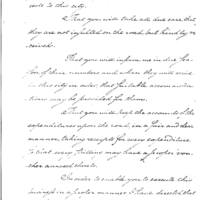 to this city.
That you will take all due care that
they are not insulted on the road, but kindly re-
ceived.
That you will inform me in due sea-
son of their numbers and when they will arrive
in this city in order that suitable accommoda-
tions may be provided for them.
That you will keep the accounts of the
expenditures upon the road, in a fair and clear
manner, taking receipts for every expenditure
that every shilling may have a proper vou-
cher annexed thereto.
In order to enable you to execute this
business in a proper manner I have directed that